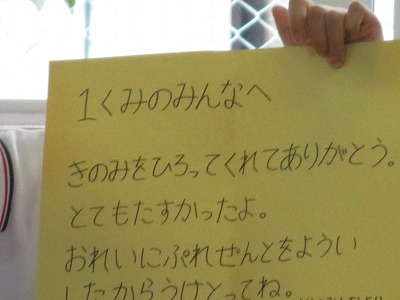 1くみのみんなへ
きのみをひろってくれてありがとう。
とてもたすかったよ。
おれいにぷれぜんとをようい
したからうけとってね。